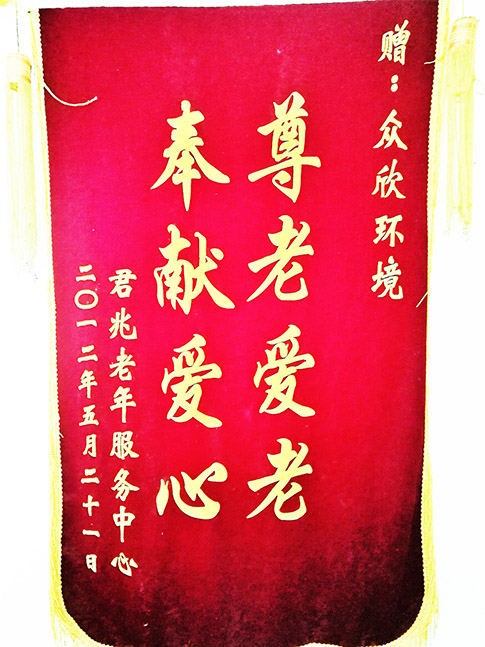 赠：众欣环境
尊老爱老
奉献爱心
君兆老年服务中心
二〇一二年五月二十一日